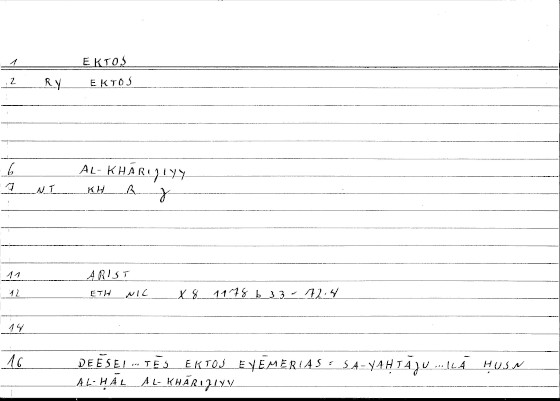 1 EKTOS
2 RY EKTOS
6 AL-KHĀRIJIYY
7 NT KH R J
11 ARIST
12 ETH NIC X 8 1178 b 33 - 72.4
14
16 DEĒSEI ... TĒS EKTOS EYĒMERIAS = SA-YAḤTĀJU ... ILĀ ḤUSN
AL-ḤĀL AL-KHĀRIJIYY